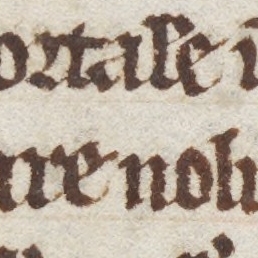 ortale i
are noli